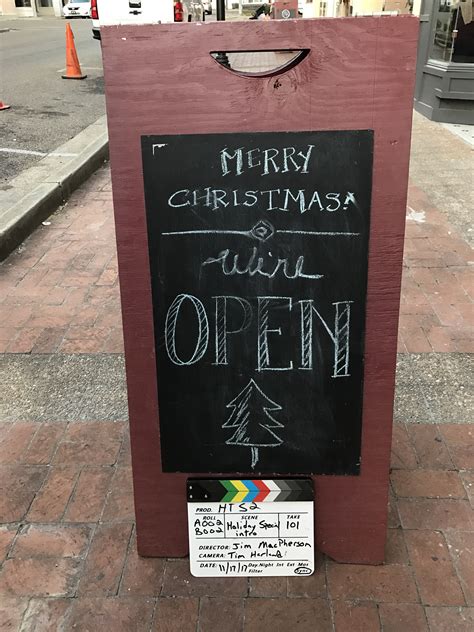 MERRY
CHRISTMAS!
we're
OPEN
PROD. HTS2
ROLL SCENE TAKE
A002 Holiday Special 101
B002 intro
DIRECTOR: Jim MacPherson
CAMERA: Tim Harland
DATE: 11/17/17 Day Night Int Ext Mos
Filter Sync